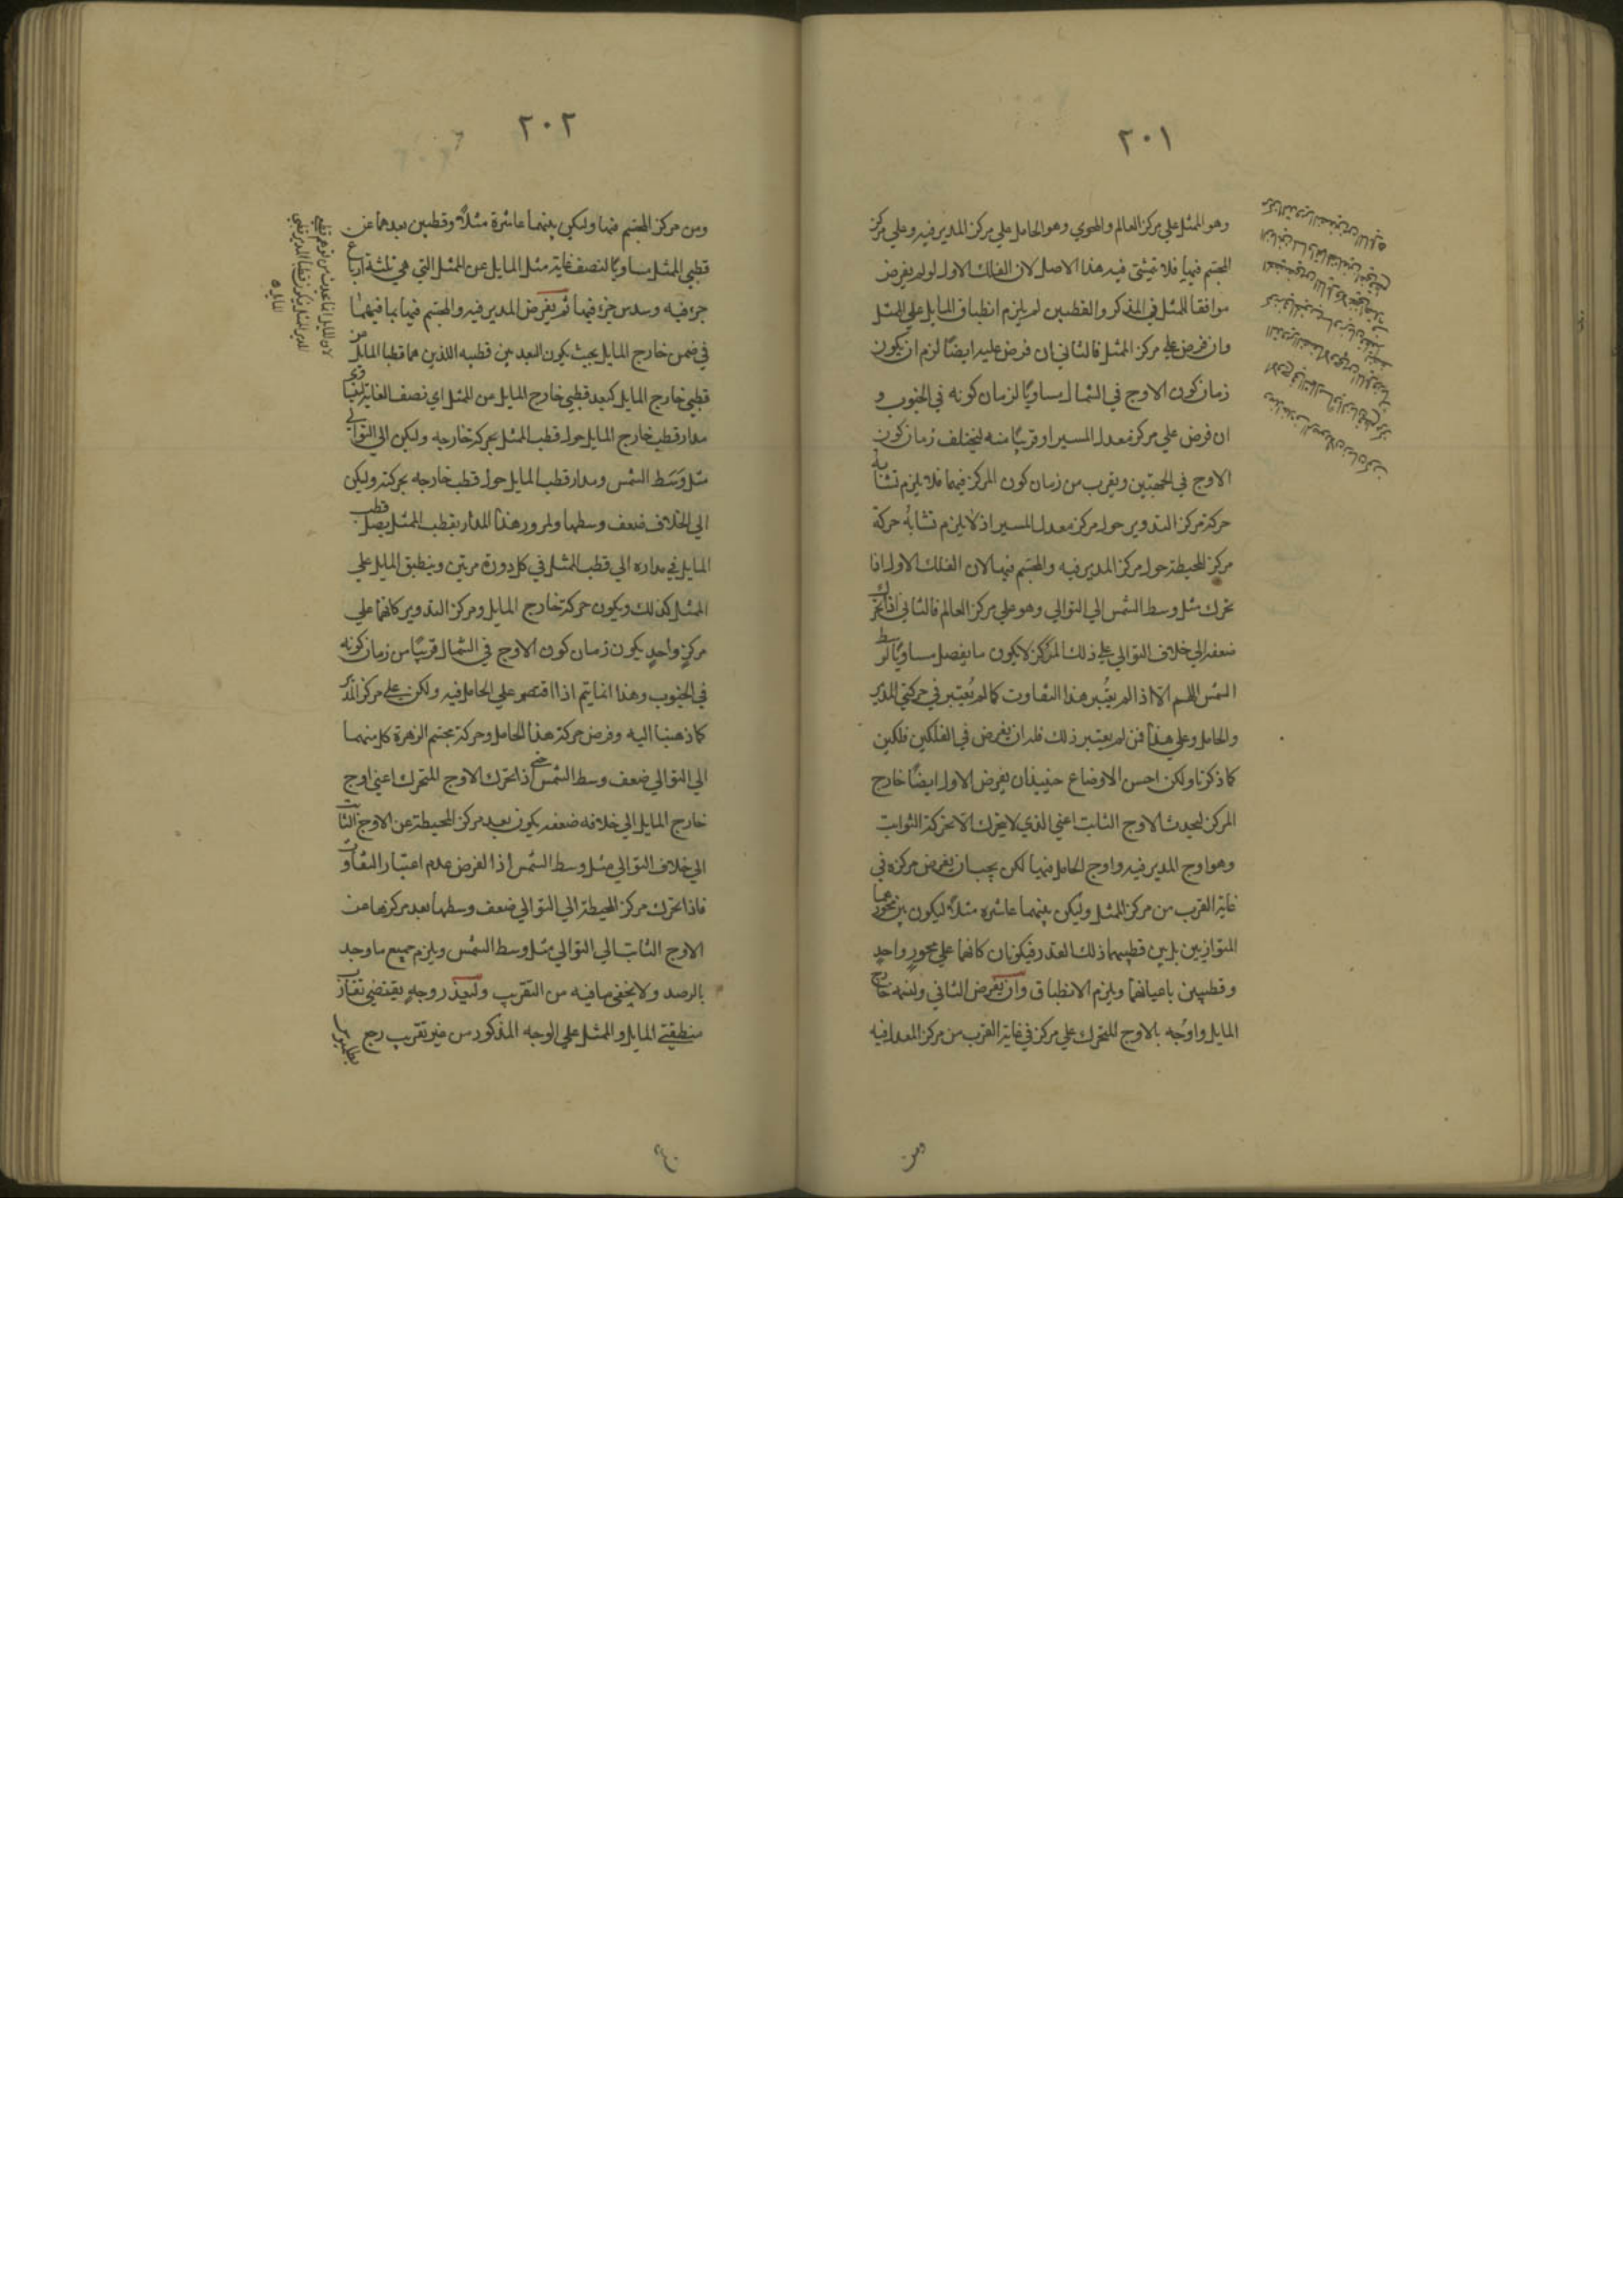 ٢٠١
وهو الممثل علي مركز العالم والمحوي وهو الحامل علي مركز المدير فيه وعلي مركز
المجتم فيها فلا يتمشي فيه هذا الاصل لان الفلك الاول لو لم يفرض
موافقا للممثل في المذكر والقطبين لم يلزم انطباق المايل علي الممثل
وان فرض علي مركز الممثل فالثاني ان فرض عليه ايضًا لزم ان يكون
زمان كون الاوج في الشمال مساويًا لزمان كونه في الجنوب و
ان فرض علي مركز معدل المسير او قريبًا منه ليختلف زمان كون
الاوج في الجهتين ويقرب من زمان كون المركز فيهما فلا يلزم تشابه
حركة مركز التدوير حول مركز معدل المسير اذ لا يلزم تشابُه حركة
مركز المحيطة حول مركز المدير فيه والمجتم فيها لان الفلك الاول اذا
تحرك مثل وسط الشمس الي التوالي وهو علي مركز العالم فالثاني اذا تحرك
ضعفه الي خلاف التوالي علي ذلك المركز لا يكون ما يفصل مساويًا لوسط
الشمس اللهم الا اذ الم يعُتبر هذا التفاوت كما لم يُعتبر في حركتي المدير
والحامل وعلي هذا فمن لم يعتبر ذلك فله ان يفرض في الفلكين فلكين
كما ذكرنا ولكن احسن الاوضاع حينيذ ان يفرض الاول ايضًا خارج
المركز ليحدث الاوج الثابت اعني الذي لا يتحرك الا بحركة الثوابت
وهو اوج المدير فيه واوج الحامل فيها لكن يجب ان يفرض مركزه في
غاية القرب من مركز الممثل وليكن بينهما عاشره مثلاً ليكون بين محوريهما
المتوازيين بل بين قطبيهما ذلك القدر فيكونان كانهما علي محورٍ واحدٍ
وقطبين باعيانهما ويلزم الانطباق وان يفرض الثاني ولنسمه خارج
المايل واوجه بالاوج المتحرك علي مركز في غاية القرب من مركز المعدل فيه
ومن
٢٠٢
ومن مركز المجتم فيها وليكن بينهما عاشرة مثلاً وقطبين بعدهما عن
قطبي الممثل مساويًا لنصف غاية ميل المايل عن الممثل التي هي ثلثة ارباع
جزء فيه وسدس جزء فيها ثم يفرض المدير فيه والمجتم فيها بما فيهما
في ضمن خارج المايل بحيث يكون البعد بين قطبيه اللذين هما قطبا المايل من
قطبي خارج المايل كبعد قطبي خارج المايل من الممثل اي نصف الغاية
مدار قطب خارج المايل حول قطب الممثل بحركة خارجه وليكن الي التوالي
مثل وَسَط الشمس ومدار قطب المايل حول قطب خارجه بحركته وليكن
الي الخلاف ضعف وسطها ولمرور هذا المدار بقطب الممثل يصل قطب
المايل في مداره الي قطب الممثل في كل دورة مرتين وينطبق المايل علي
الممثل كذلك ويكون حركة خارج المايل ومركز التدوير كانهما علي
مركزٍ واحدٍ يكون زمان كون الاوج في الشمال قريبًا من زمان كونه
في الجنوب وهذا انما يتم اذا اقتصر علي الحامل فيه ولكن علي مركز المدير
كما ذهبنا اليه وفرض حركة هذا الحامل وحركة مجتم الزهرة كل منهما
الي التوالي ضعف وسط الشمس حتي اذا تحرك الاوج المتحرك اعني اوج
خارج المايل الي خلافه ضعفه يكون بعد مركز المحيطة عن الاوج الثابت
الي خلاف التوالي مثل وسط الشمس اذ الفرض عدم اعتبار التفاوت
فاذا تحرك مركز المحيطة الي التوالي ضعف وسطها بعد مركزها عن
الاوج الثابت الي التوالي مثل وسط الشمس ويلزم جميع ما وجد
بالرصد ولا يخفي ما فيه من التقريب ولتعذر وجهٍ يقتضي تقارب
منطقتي المايل والممثل علي الوجه المذكور من غير تقريب رجع